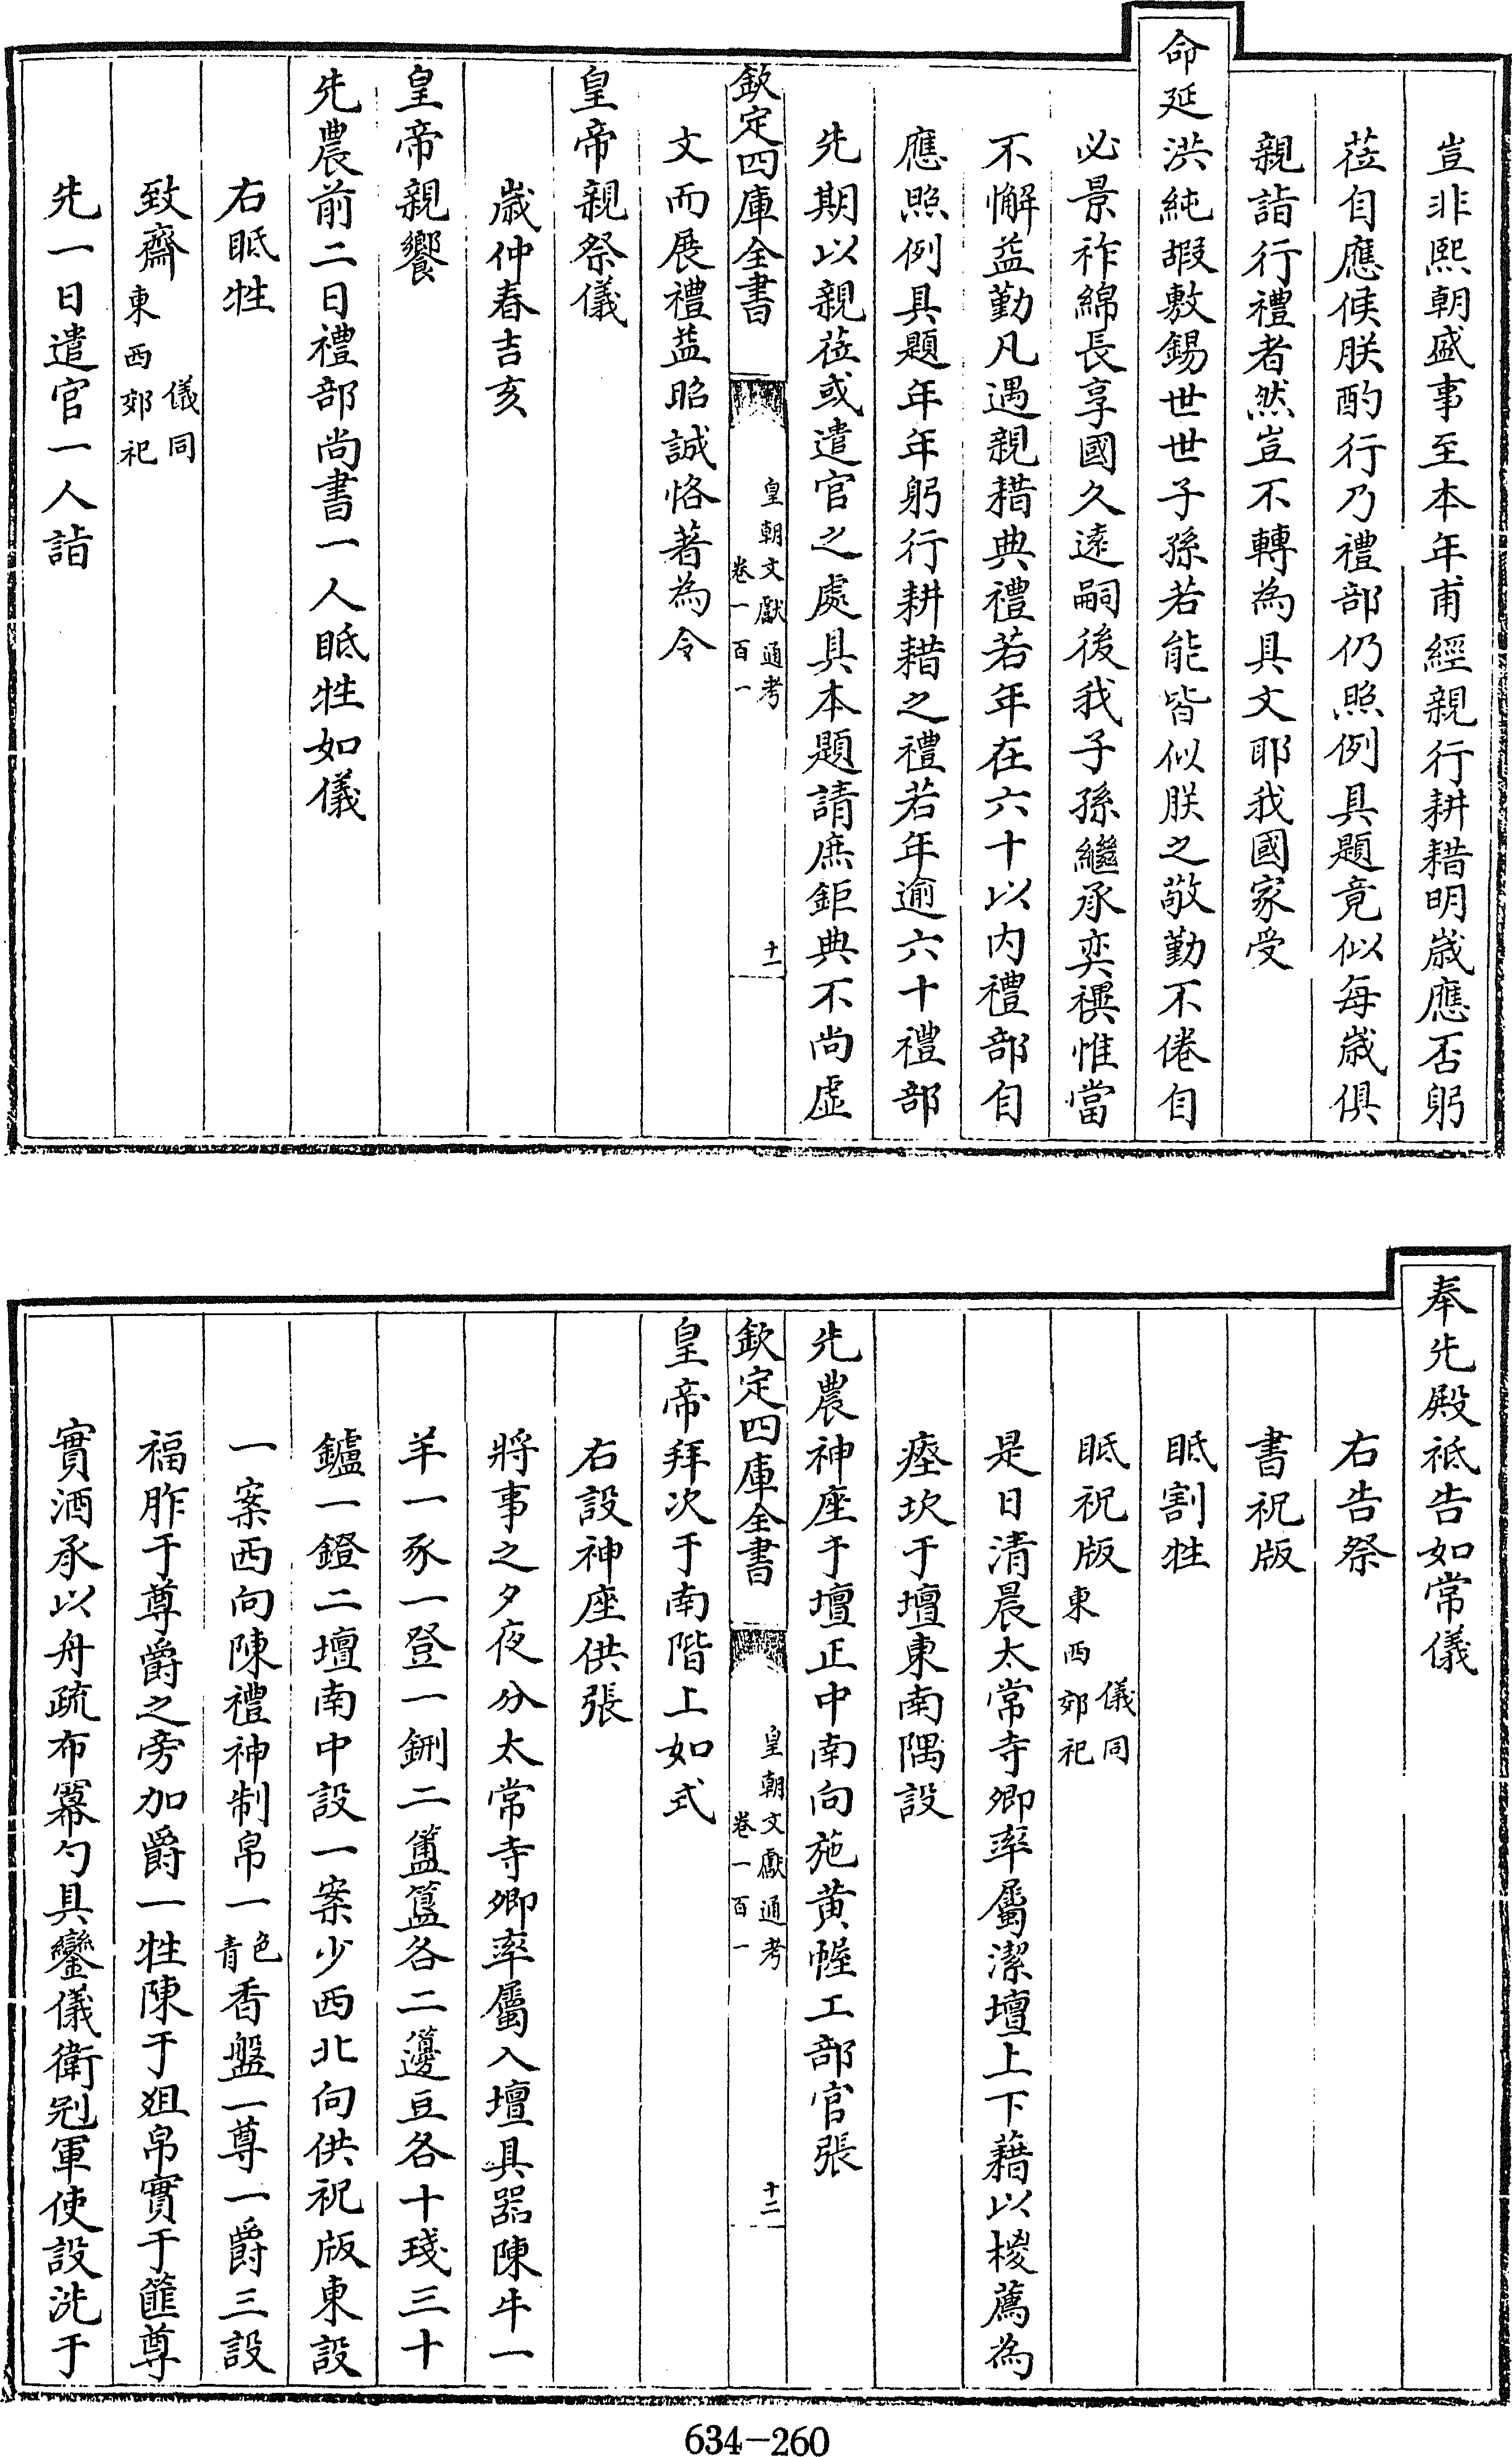 豈非熙朝盛事至本年甫經親行耕耤明歲應否躬
莅自應候朕酌行乃禮部仍照例具題竟似每歲俱
親詣行禮者然豈不轉為具文耶我國家受
命延洪純嘏敷錫世世子孫若能皆似朕之敬勤不倦自
必景祚綿長享國久遠嗣後我子孫繼承奕禩惟當
不懈益勤凡遇親耤典禮若年在六十以内禮部自
應照例具題年年躬行耕耤之禮若年逾六十禮部
先期以親莅或遣官之處具本題請庶鉅典不尚虛
欽定四庫全書 皇朝文獻通考 卷一百一 十一
文而展禮益昭誠恪著為令
皇帝親祭儀
歲仲春吉亥
皇帝親饗
先農前二日禮部尚書一人眡牲如儀
右眡牲
致齋東西郊祀儀同
先一日遣官一人詣
奉先殿祗告如常儀
右告祭
書祝版
眡割牲
眡祝版東西郊祀儀同
是日清晨太常寺卿率屬潔壇上下藉以椶薦為
瘞坎于壇東南隅設
先農神座于壇正中南向施黄幄工部官張
欽定四庫全書 皇朝文獻通考 卷一百一 十二
皇帝拜次于南階上如式
右設神座供張
將事之夕夜分太常寺卿率屬入壇具器陳牛一
羊一豕一登一鉶二簠簋各二籩豆各十琖三十
鑪一鐙二壇南中設一案少西北向供祝版東設
一案西向陳禮神制帛一色青香盤一尊一爵三設
福胙于尊爵之旁加爵一牲陳于俎帛實于篚尊
實酒承以舟疏布冪勺具鑾儀衛冠軍使設洗于
634-260